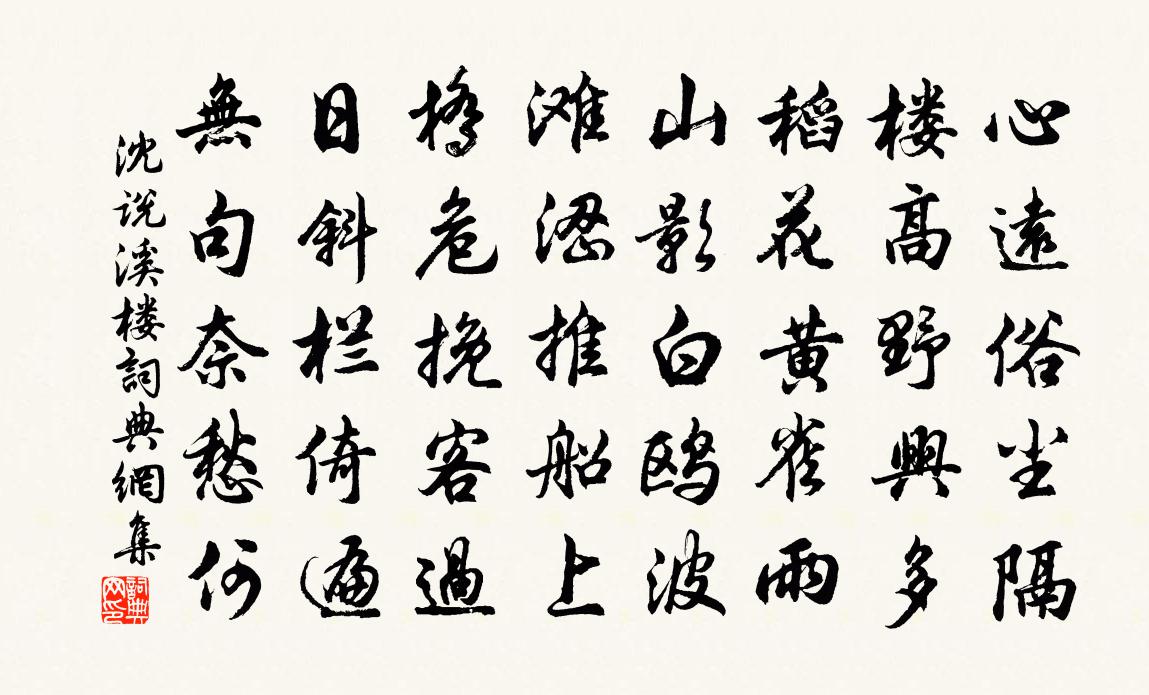 心遠俗尘隔
楼高野興多
稻花黄雀雨
山影白鸥波
滩澀推船上
橋危挽客過
日斜栏倚遍
無句奈愁何
沈说溪楼詞典網集
詞典网印